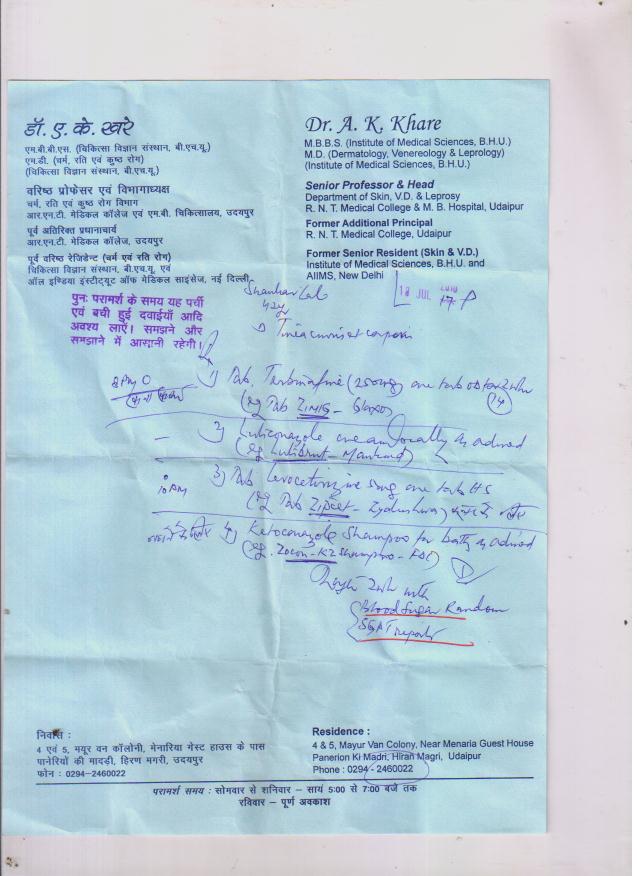 डॉ. ए. के. खरे
एम.बी.बी.एस. (चिकित्सा विज्ञान संस्थान, बी.एच.यू.)
एम.डी. (चर्म, रति एवं कुष्ठ रोग)
(चिकित्सा विज्ञान संस्थान, बी.एच.यू.)
वरिष्ठ प्रोफेसर एवं विभागाध्यक्ष
चर्म, रति एवं कुष्ठ रोग विभाग
आर.एन.टी. मेडिकल कॉलेज एवं एम.बी. चिकित्सालय, उदयपुर
पूर्व अतिरिक्त प्रधानाचार्य
आर.एन.टी. मेडिकल कॉलेज, उदयपुर
पूर्व वरिष्ठ रेजिडेन्ट (चर्म एवं रति रोग)
चिकित्सा विज्ञान संस्थान, बी.एच.यू. एवं
ऑल इण्डिया इंस्टीट्यूट ऑफ मेडिकल साइंसेज, नई दिल्ली
Dr. A. K. Khare
M.B.B.S. (Institute of Medical Sciences, B.H.U.)
M.D. (Dermatology, Venereology & Leprology)
(Institute of Medical Sciences, B.H.U.)
Senior Professor & Head
Department of Skin, V.D. & Leprosy
R. N. T. Medical College & M. B. Hospital, Udaipur
Former Additional Principal
R. N. T. Medical College, Udaipur
Former Senior Resident (Skin & V.D.)
Institute of Medical Sciences, B.H.U. and
AIIMS, New Delhi
पुनः परामर्श के समय यह पर्ची
एवं बची हुई दवाईयाँ आदि
अवश्य लाएँ। समझने और
समझाने में आसानी रहेगी।
Shankar Lal
JUL
Tinea cruris et corporis
1) Tab. Terbinafine (250mg) one tab OD for 2 wks
(eg Tab ZIMIG - Glaxo) 14
2) Luliconazole cream locally as advised
(eg Lulibrut - Mankind)
10 PM
3) Tab levocetirizine 5mg one tab HS
(eg Tab Zipcet - Zydus
4) Ketoconazole Shampoo for bath as advised
(eg. Zocon-KZ shampoo - FDC) 1
2wk with
Blood Sugar Random
SGPT report
निवास :
4 एवं 5, मयूर वन कॉलोनी, मेनारिया गेस्ट हाउस के पास
पानेरियों की मादड़ी, हिरण मगरी, उदयपुर
फोन : 0294-2460022
Residence :
4 & 5, Mayur Van Colony, Near Menaria Guest House
Panerion Ki Madri, Hiran Magri, Udaipur
Phone : 0294 - 2460022
परामर्श समय : सोमवार से शनिवार - सायं 5:00 से 7:00 बजे तक
रविवार - पूर्ण अवकाश